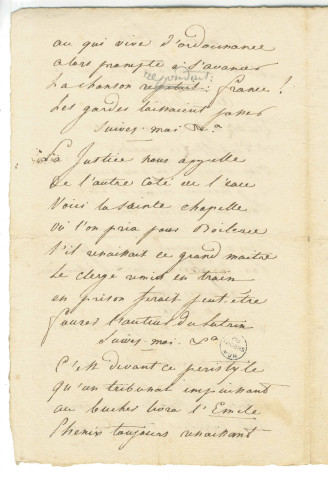 au qui vive d'ordonnance
alors prompte à s'avancer
répondait :
La chanson : france !
Les gardes laissaient passer
Suivez-moi &a
La Justice nous appelle
De l'autre côté de l'eau
Voici la sainte chapelle
où l'on pria pour Boileau
S'il renaissait ce grand maitre
Le clergé remis en train
en prison ferait peut-être
fourrer l'auteur du Lutrin
Suivez-moi. &a
C'est devant ce peristyle
qu'un tribunal impuissant
au bucher livra l'Emile
Phenix toujours renaissant